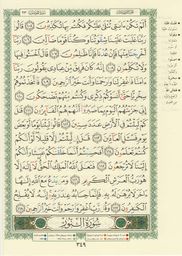 أَلَمْ تَكُنْ ءَايَٰتِى تُتْلَىٰ عَلَيْكُمْ فَكُنتُم بِهَا تُكَذِّبُونَ ١٠٥
قَالُوا۟ رَبَّنَا غَلَبَتْ عَلَيْنَا شِقْوَتُنَا وَكُنَّا قَوْمًا ضَآلِّينَ ١٠٦ رَبَّنَآ
أَخْرِجْنَا مِنْهَا فَإِنْ عُدْنَا فَإِنَّا ظَٰلِمُونَ ١٠٧ قَالَ ٱخْسَـُٔوا۟ فِيهَا
وَلَا تُكَلِّمُونِ ١٠٨ إِنَّهُۥ كَانَ فَرِيقٌ مِّنْ عِبَادِى يَقُولُونَ رَبَّنَآ
ءَامَنَّا فَٱغْفِرْ لَنَا وَٱرْحَمْنَا وَأَنتَ خَيْرُ ٱلرَّٰحِمِينَ ١٠٩ فَٱتَّخَذْتُمُوهُمْ
سِخْرِيًّا حَتَّىٰٓ أَنسَوْكُمْ ذِكْرِى وَكُنتُم مِّنْهُمْ تَضْحَكُونَ ١١٠
إِنِّى جَزَيْتُهُمُ ٱلْيَوْمَ بِمَا صَبَرُوٓا۟ أَنَّهُمْ هُمُ ٱلْفَآئِزُونَ ١١١ قَٰلَ
كَمْ لَبِثْتُمْ فِى ٱلْأَرْضِ عَدَدَ سِنِينَ ١١٢ قَالُوا۟ لَبِثْنَا يَوْمًا أَوْ بَعْضَ
يَوْمٍ فَسْـَٔلِ ٱلْعَآدِّينَ ١١٣ قَٰلَ إِن لَّبِثْتُمْ إِلَّا قَلِيلًا لَّوْ أَنَّكُمْ
كُنتُمْ تَعْلَمُونَ ١١٤ أَفَحَسِبْتُمْ أَنَّمَا خَلَقْنَٰكُمْ عَبَثًا وَأَنَّكُمْ
إِلَيْنَا لَا تُرْجَعُونَ ١١٥ فَتَعَٰلَى ٱللَّهُ ٱلْمَلِكُ ٱلْحَقُّ لَآ إِلَٰهَ إِلَّا
هُوَ رَبُّ ٱلْعَرْشِ ٱلْكَرِيمِ ١١٦ وَمَن يَدْعُ مَعَ ٱللَّهِ إِلَٰهًا
ءَاخَرَ لَا بُرْهَٰنَ لَهُۥ بِهِۦ فَإِنَّمَا حِسَابُهُۥ عِندَ رَبِّهِۦٓ إِنَّهُۥ لَا يُفْلِحُ
ٱلْكَٰفِرُونَ ١١٧ وَقُل رَّبِّ ٱغْفِرْ وَٱرْحَمْ وَأَنتَ خَيْرُ ٱلرَّٰحِمِينَ ١١٨
سُورَةُ النُّورِ
٣٤٩